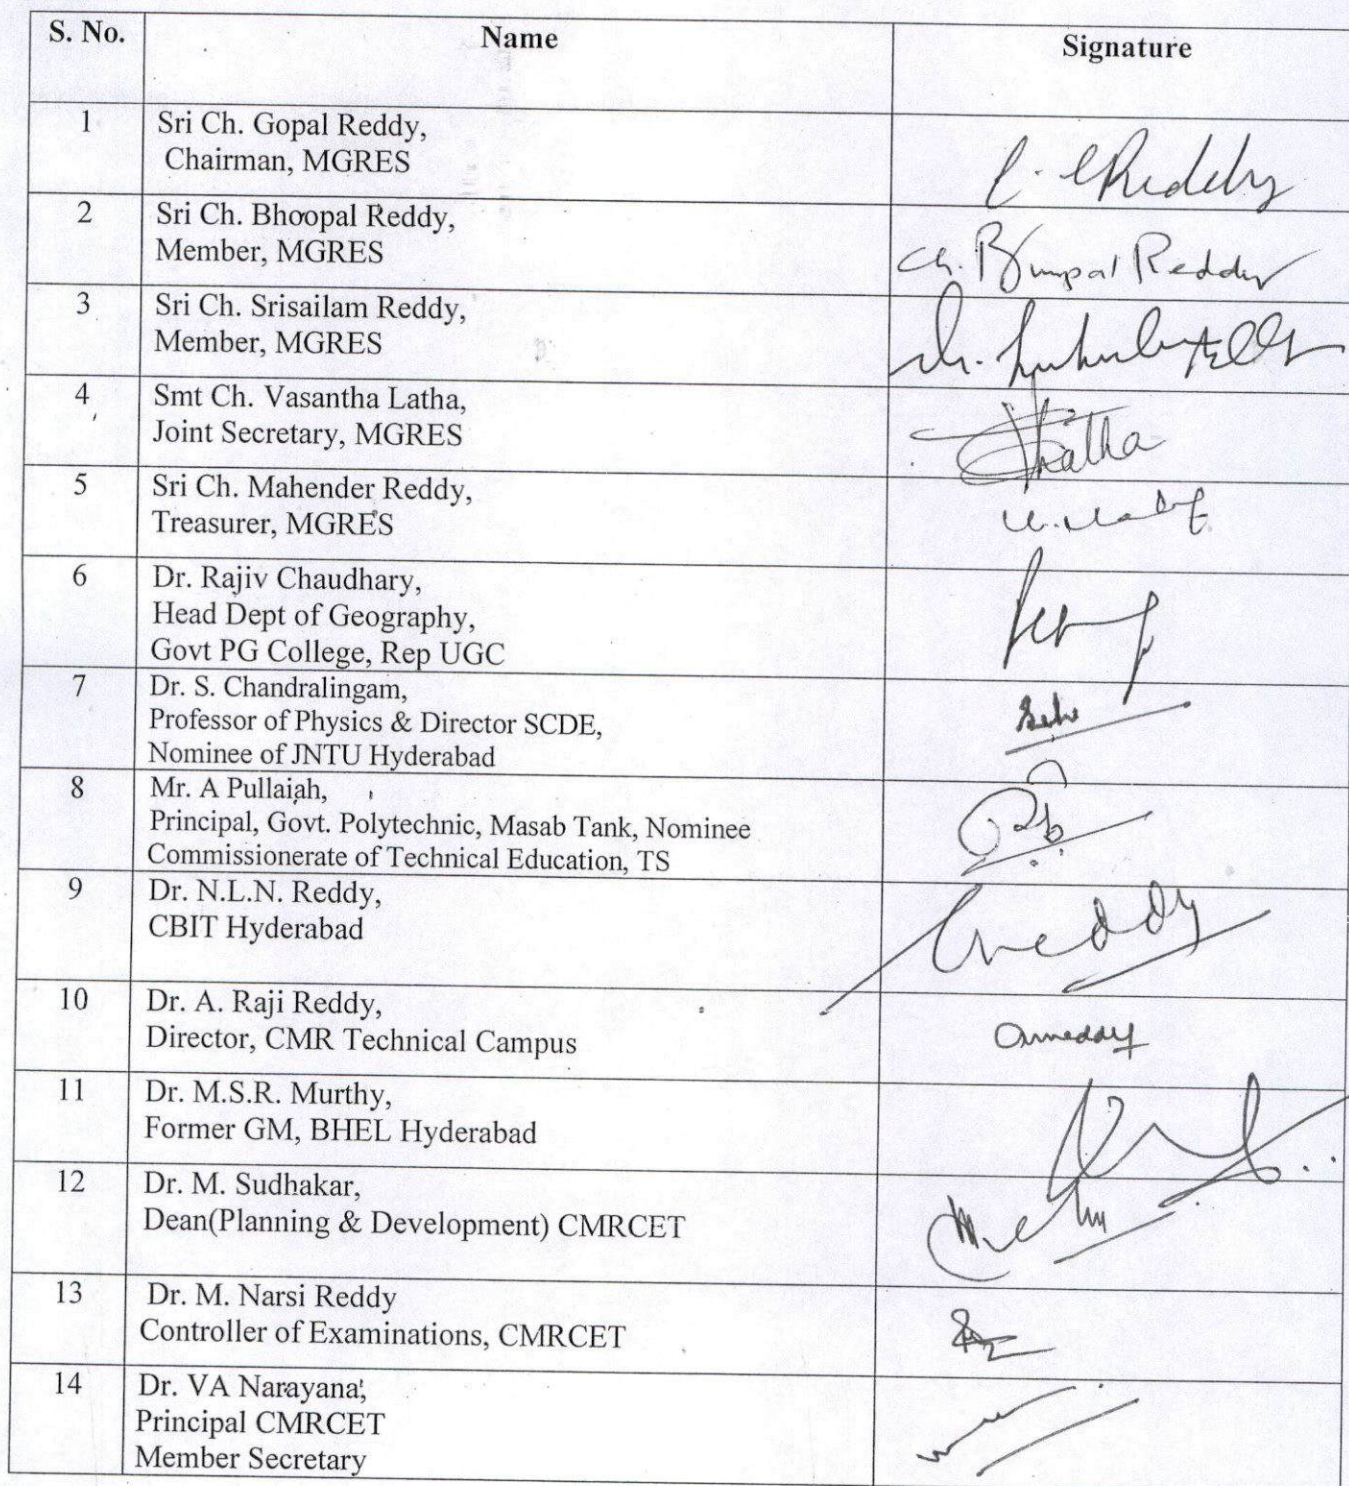 S. No. Name Signature
1 Sri Ch. Gopal Reddy,
Chairman, MGRES
2 Sri Ch. Bhoopal Reddy,
Member, MGRES
Ch. Bhoopal Reddy
3 Sri Ch. Srisailam Reddy,
Member, MGRES
4 Smt Ch. Vasantha Latha,
Joint Secretary, MGRES
5 Sri Ch. Mahender Reddy,
Treasurer, MGRES
6 Dr. Rajiv Chaudhary,
Head Dept of Geography,
Govt PG College, Rep UGC
7 Dr. S. Chandralingam,
Professor of Physics & Director SCDE,
Nominee of JNTU Hyderabad
8 Mr. A Pullaiah,
Principal, Govt. Polytechnic, Masab Tank, Nominee
Commissionerate of Technical Education, TS
9 Dr. N.L.N. Reddy,
CBIT Hyderabad
10 Dr. A. Raji Reddy,
Director, CMR Technical Campus
11 Dr. M.S.R. Murthy,
Former GM, BHEL Hyderabad
12 Dr. M. Sudhakar,
Dean(Planning & Development) CMRCET
13 Dr. M. Narsi Reddy
Controller of Examinations, CMRCET
14 Dr. VA Narayana,
Principal CMRCET
Member Secretary